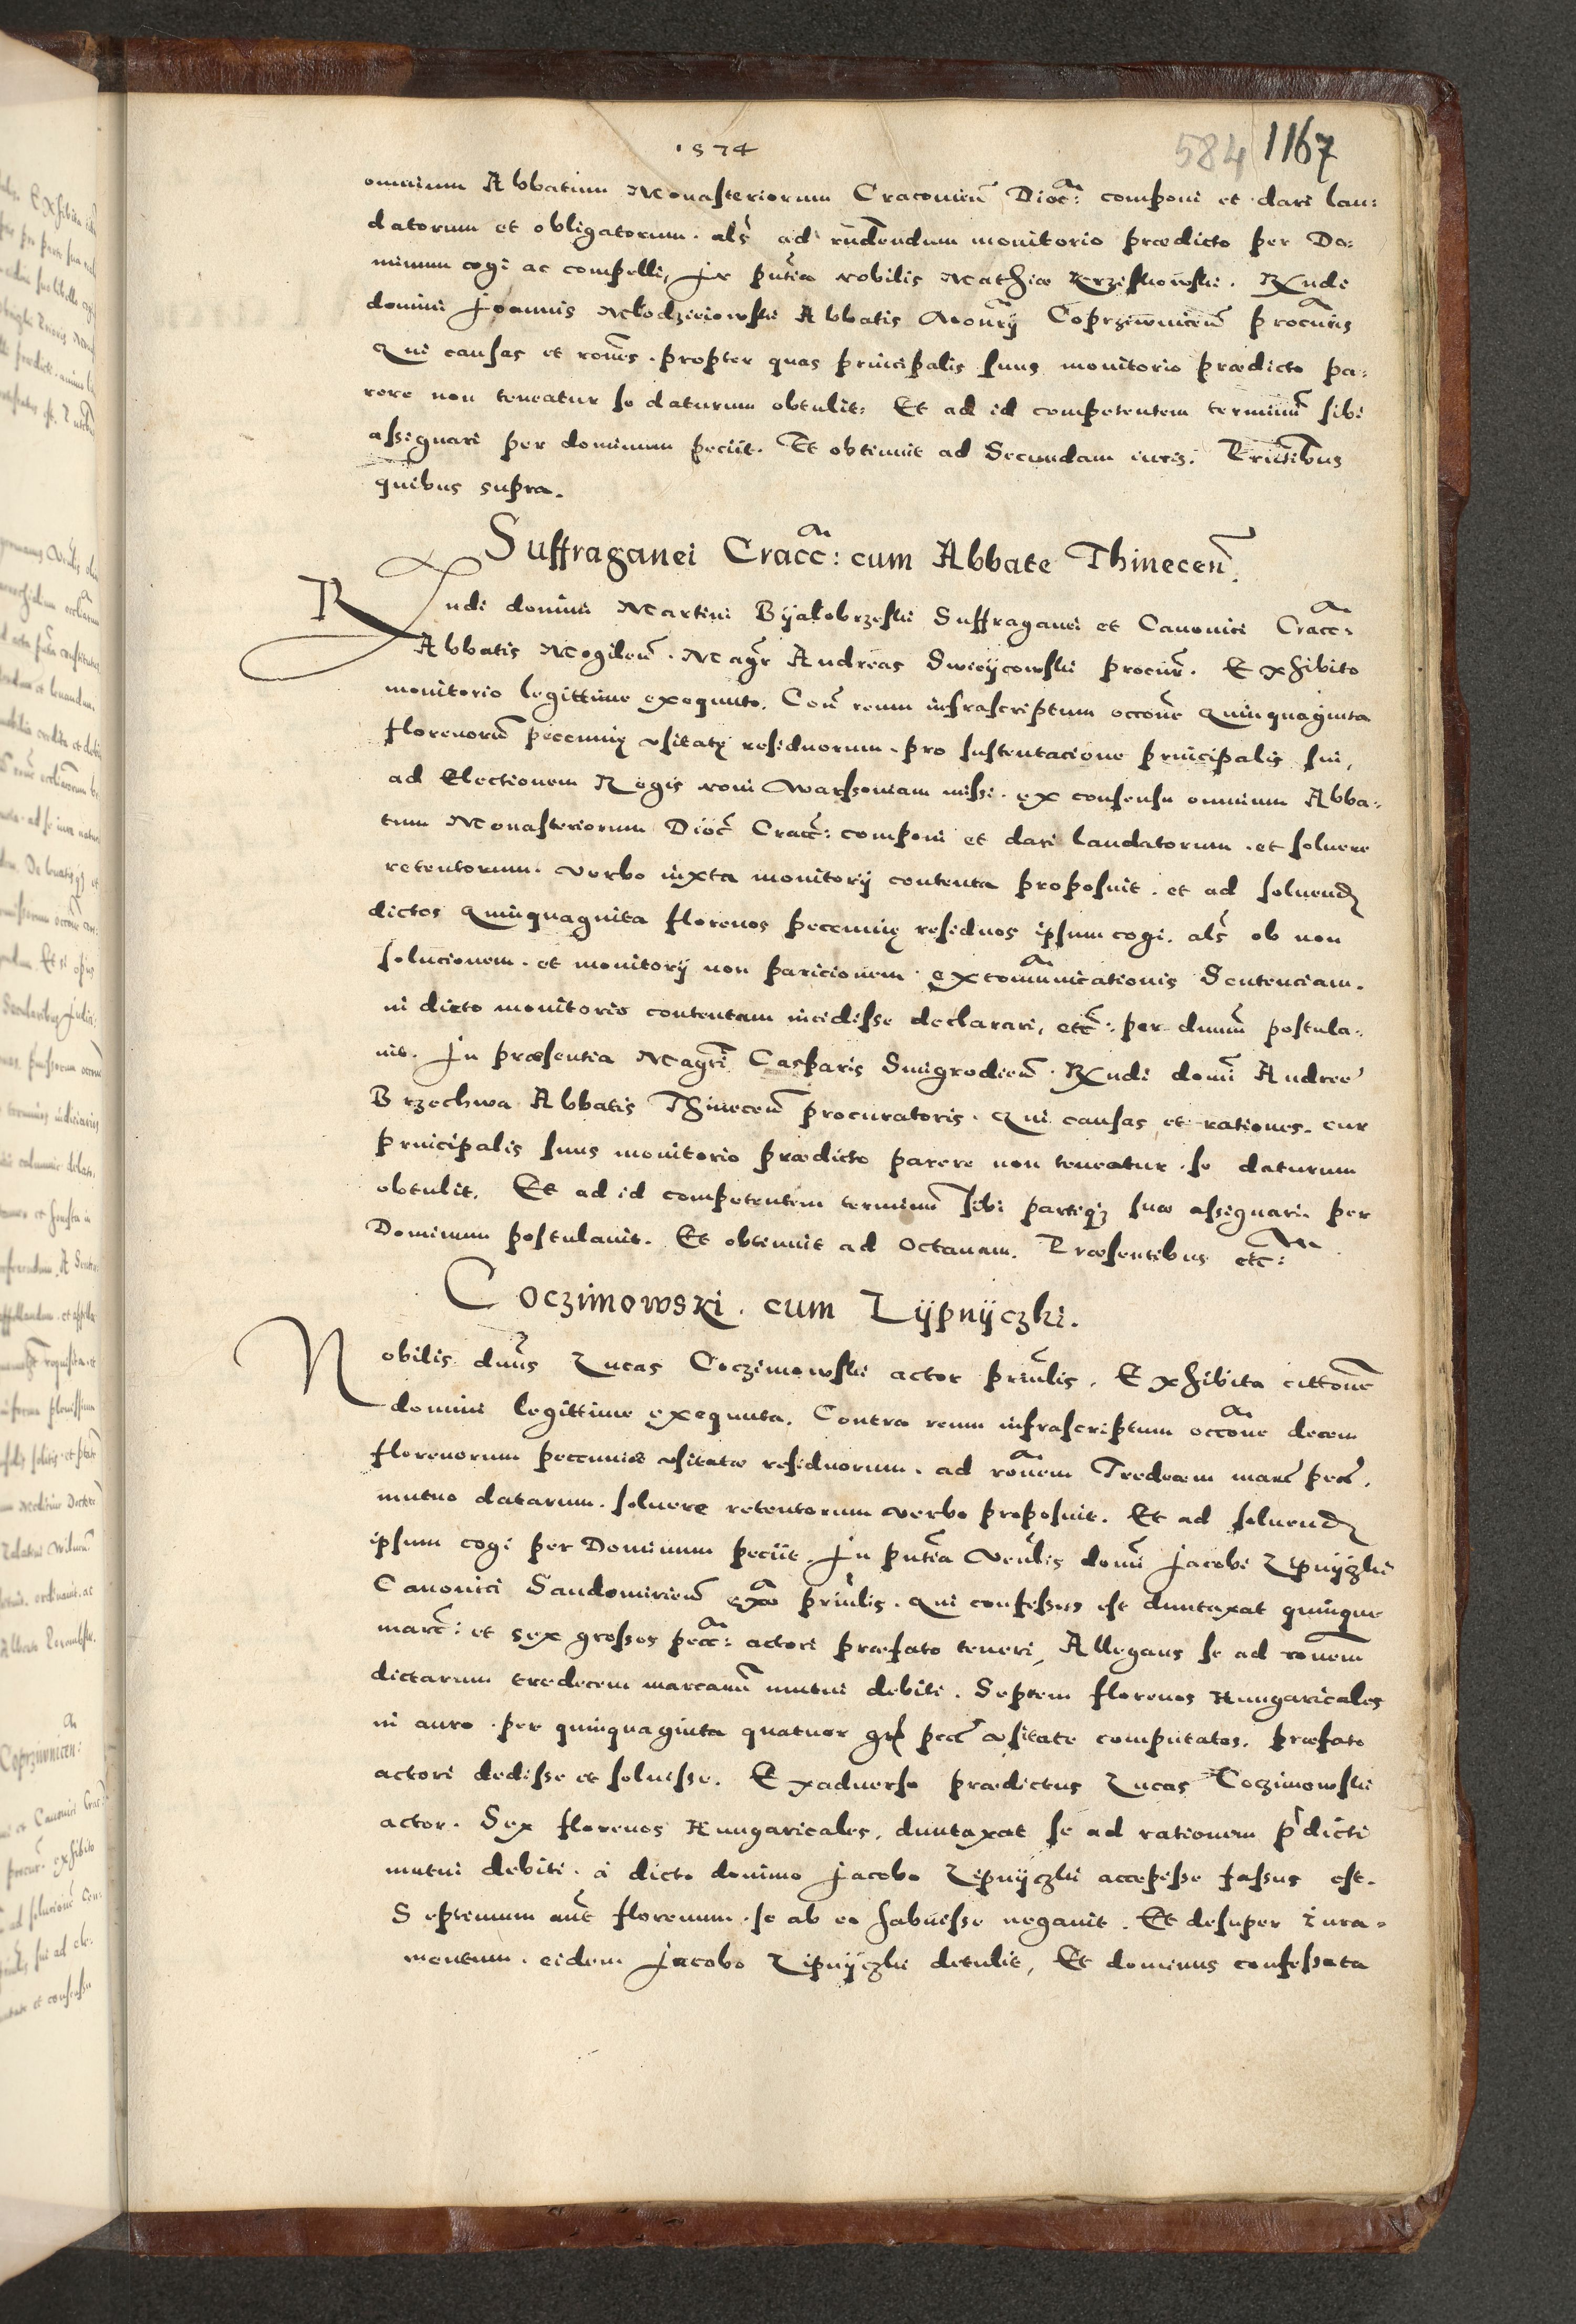 1574
584 1167
omnium Abbatum Monasteriorum Cracouien̄ Dioc: componi et dari lau:
datorum et obligatorum. als̄ ad rn̄dendum monitorio prædicto per Do:
minum cogi ac compelli, In pn̄tia nobilis Mathiæ Krzesskowski. Rn̄di
domini Joannis Młodzieiowski Abbatis Mon̄rij Coprziwnicen̄ procuris
Qui causas et ron̄es. propter quas principalis suus monitorio prædicto pa:
rere non teneatur se daturum obtulit: Et ad id competentem terminū sibi
assignari per dominum peciit. Et obtinuit ad Secundam iuris. Prn̄tibus
quibus supra.
Suffraganei Cracc: cum Abbate Thinecen̄.
Rndi domini Martini Byalobrzeski Suffraganei et Canonici Cracc:
Abbatis Mogilen̄. Maḡr Andreas Swieycowski procur̄. Exhibito
monitorio legittime exequuto. Con̄ reum infrascriptum occōne Quinquaginta
florenorū pecunię usitatę residuorum. pro sustentacione principalis sui,
ad Electionem Regis novi Warssoviam missi. ex consensu omnium Abba:
tum Monasteriorum Dioc̄ Cracc̄: componi et dari laudatorum. et soluere
retentorum. verbo iuxta monitorij contenta proposuit. et ad soluend
dictos Quinquaginta florenos peccunię residuos ipsum cogi. als̄ ob non
solucionem. et monitorij non paricionem. excommunicationis Sentenciam.
in dicto monitorio contentam incidisse declarari, etc̄: per dnūm postula:
uit. In præsentia Magr̄i Casparis Smigrodien̄. Rn̄di domī Andreę
Brzechwa Abbatis Thinecen̄ procuratoris. Qui causas et rationes. cur
principalis suus monitorio prædicto parere non teneatur. se daturum
obtulit. Et ad id competentem terminū sibi partiq suæ assignari per
Dominum postulavit. Et obtinuit ad Octavam. Præsentibus etc:
Coczimowski. cum Lypnyczki.
Nobilis dn̄us Lucas Coczimowski actor prin̄lis. Exhibita cittōne
domini legittime exequuta. Contra reum infrascriptum occōne decem
florenorum peccuniæ usitatæ residuorum. ad rōnem Tredecem marc̄ pecc̄.
mutuo datarum. soluere retentorum verbo proposuit. Et ad soluend
ipsum cogi per Dominum peciit. In pn̄tia Ven̄lis domī Jacobi Lipnyczki
Canonici Sandomirien̄ exa prin̄lis. qui confessus est duntaxat quinque
marc̄: et sex grossos pecc: actori præfato teneri, Allegans se ad rōnem
dictarum tredecem marcarū mutui debiti. Septem florenos Hungaricales
in auro. per quinquaginta quatuor gr̄ pecc̄ usitate computatos. præfato
actori dedisse et soluisse. Exaduerso prædictus Lucas Coczimowski
actor. Sex florenos Hungaricales, duntaxat se ad rationem p̄dicti
mutui debiti. à dicto domino Jacobo Lipnyczki accepisse fassus est.
Septimum aūt florenum. se ab eo habuisse negauit. Et desuper iura:
mentum. eidem Jacobo Lipnyczki detulit, Et dominus confessata